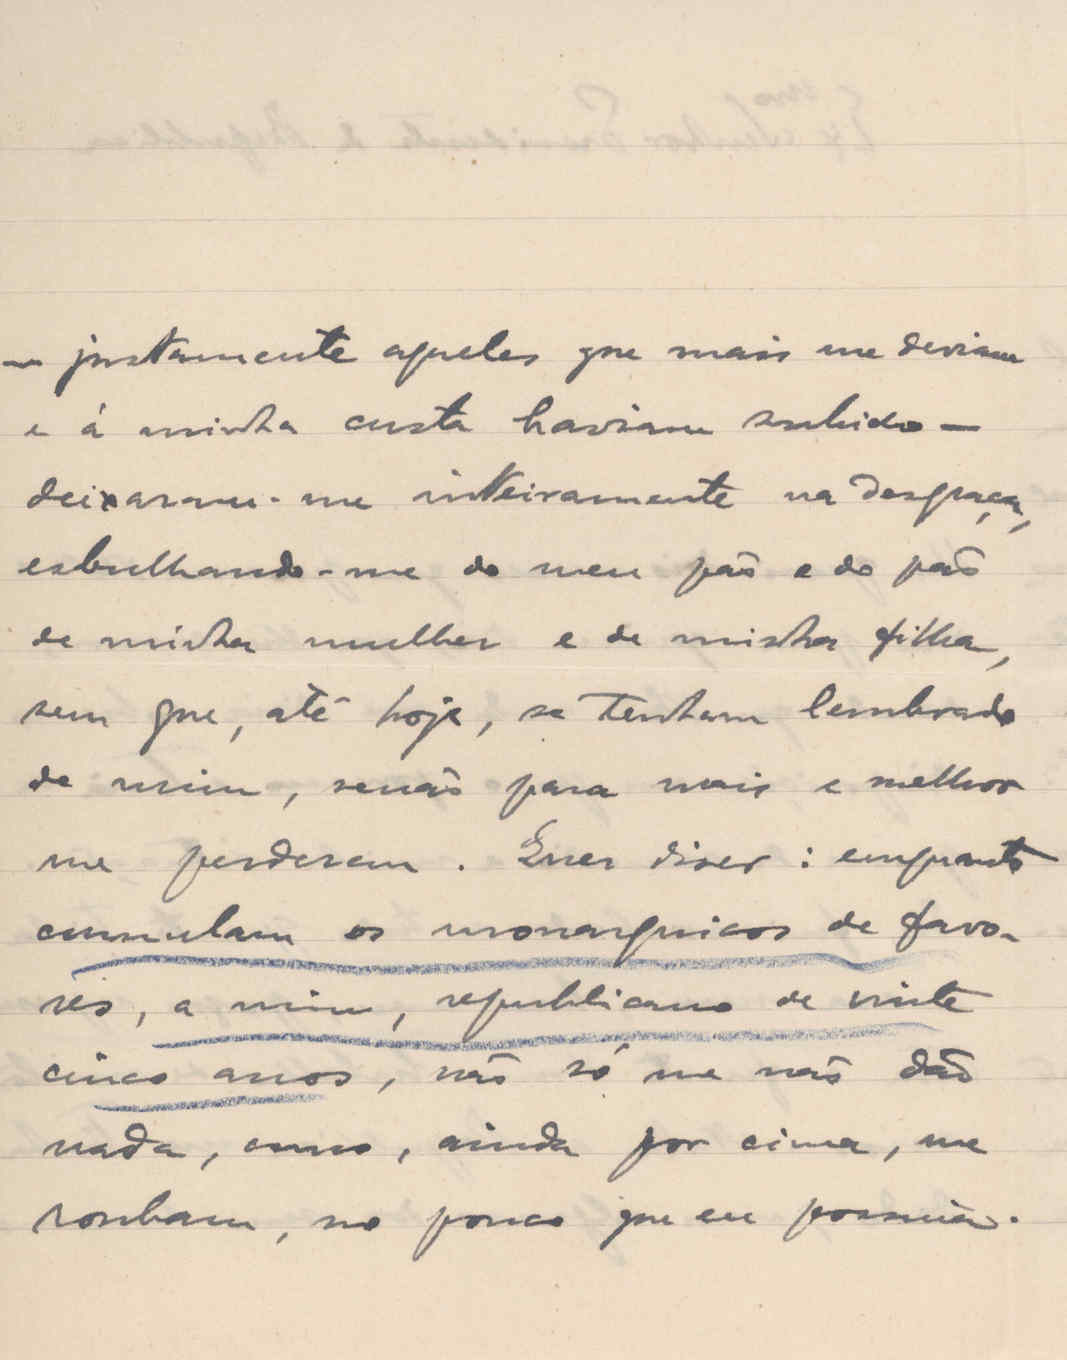 — justamente aqueles que mais me deviam
e á minha custa haviam subido —
deixaram-me inteiramente na desgraça,
esbulhando-me do meu pão e do pão
de minha mulher e de minha filha,
sem que, até hoje, se tenham lembrado
de mim, senão para mais e melhor
me perderem. Quer dizer: emquanto
cumulam os monarquicos de favo-
res, a mim, republicano de vinte
cinco anos, não só me não dão
nada, como, ainda por cima, me
roubam, no pouco que eu possuia.